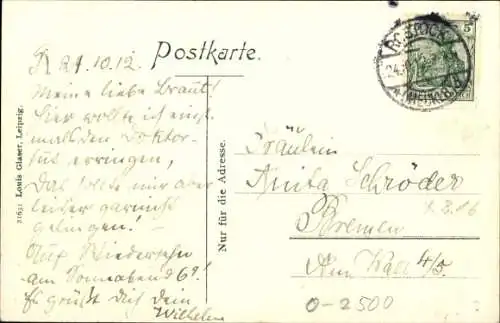 Postkarte.
R. 24.10.12.
Meine liebe Braut!
Hier wollte ich einst
mal den Doktor-
hut erringen,
Das sollte mir aber
leider garnicht
gelingen!
Auf Wiedersehn
am Sonnabend 6º!
Es grüßt Dich Dein
Wilhelm
21631 Louis Glaser, Leipzig.
Nur für die Adresse.
ROSTOCK
5
Fräulein
Anita Schröder
Bremen
Am Wall 4/5.
0-2500